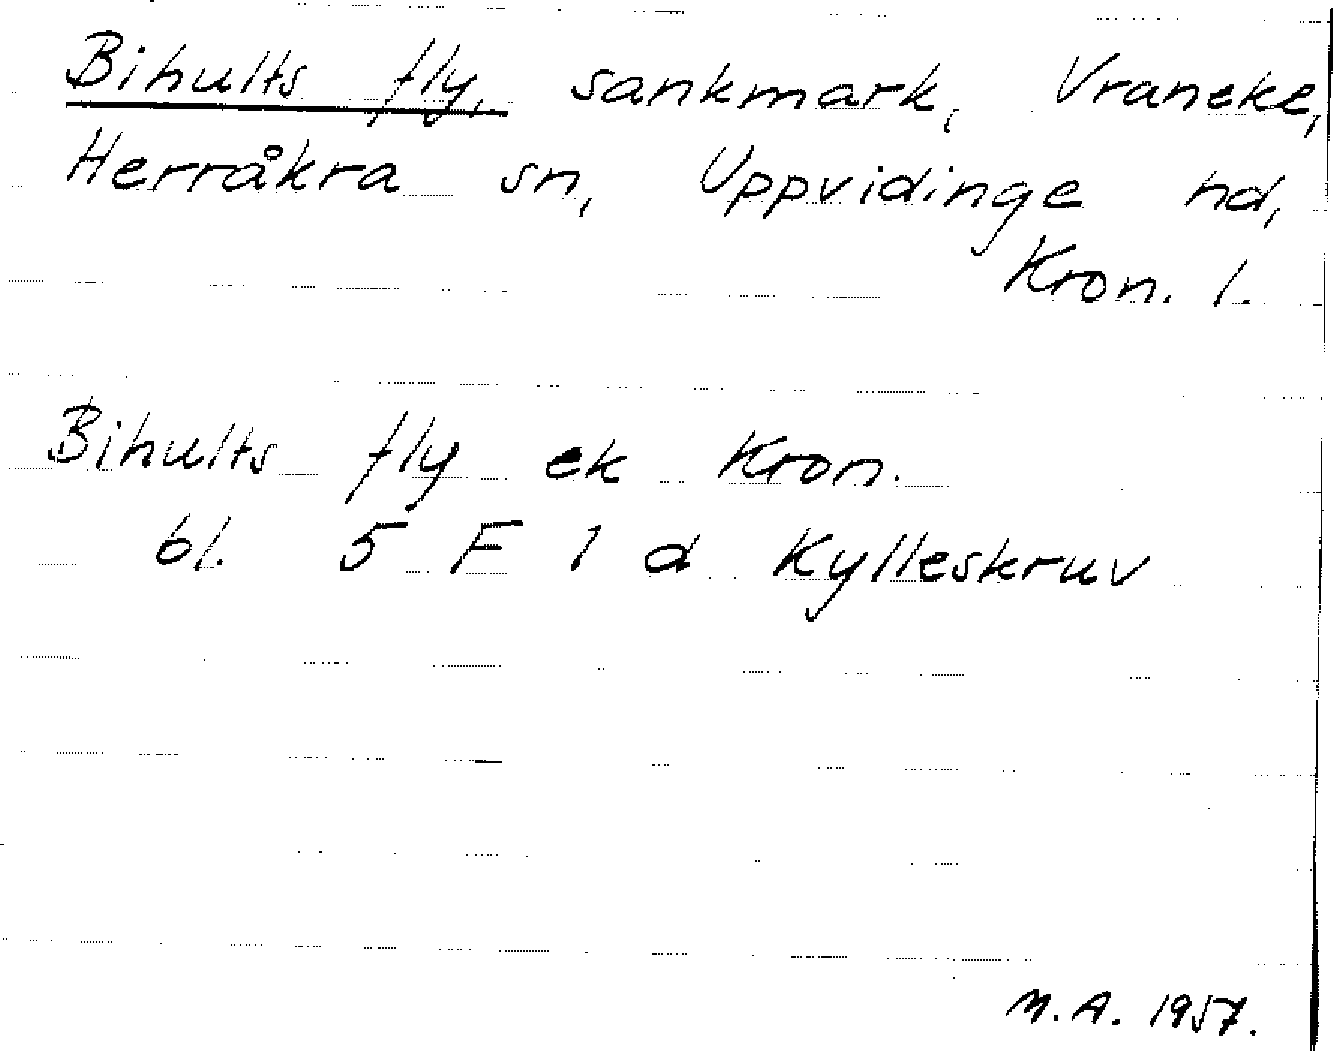 Bihults fly, sankmark, Vraneke,
Herråkra sn, Uppvidinge hd,
Kron. l.
Bihults fly ek Kron.
bl. 5 F 1 d Kylleskruv
M.A. 1957.